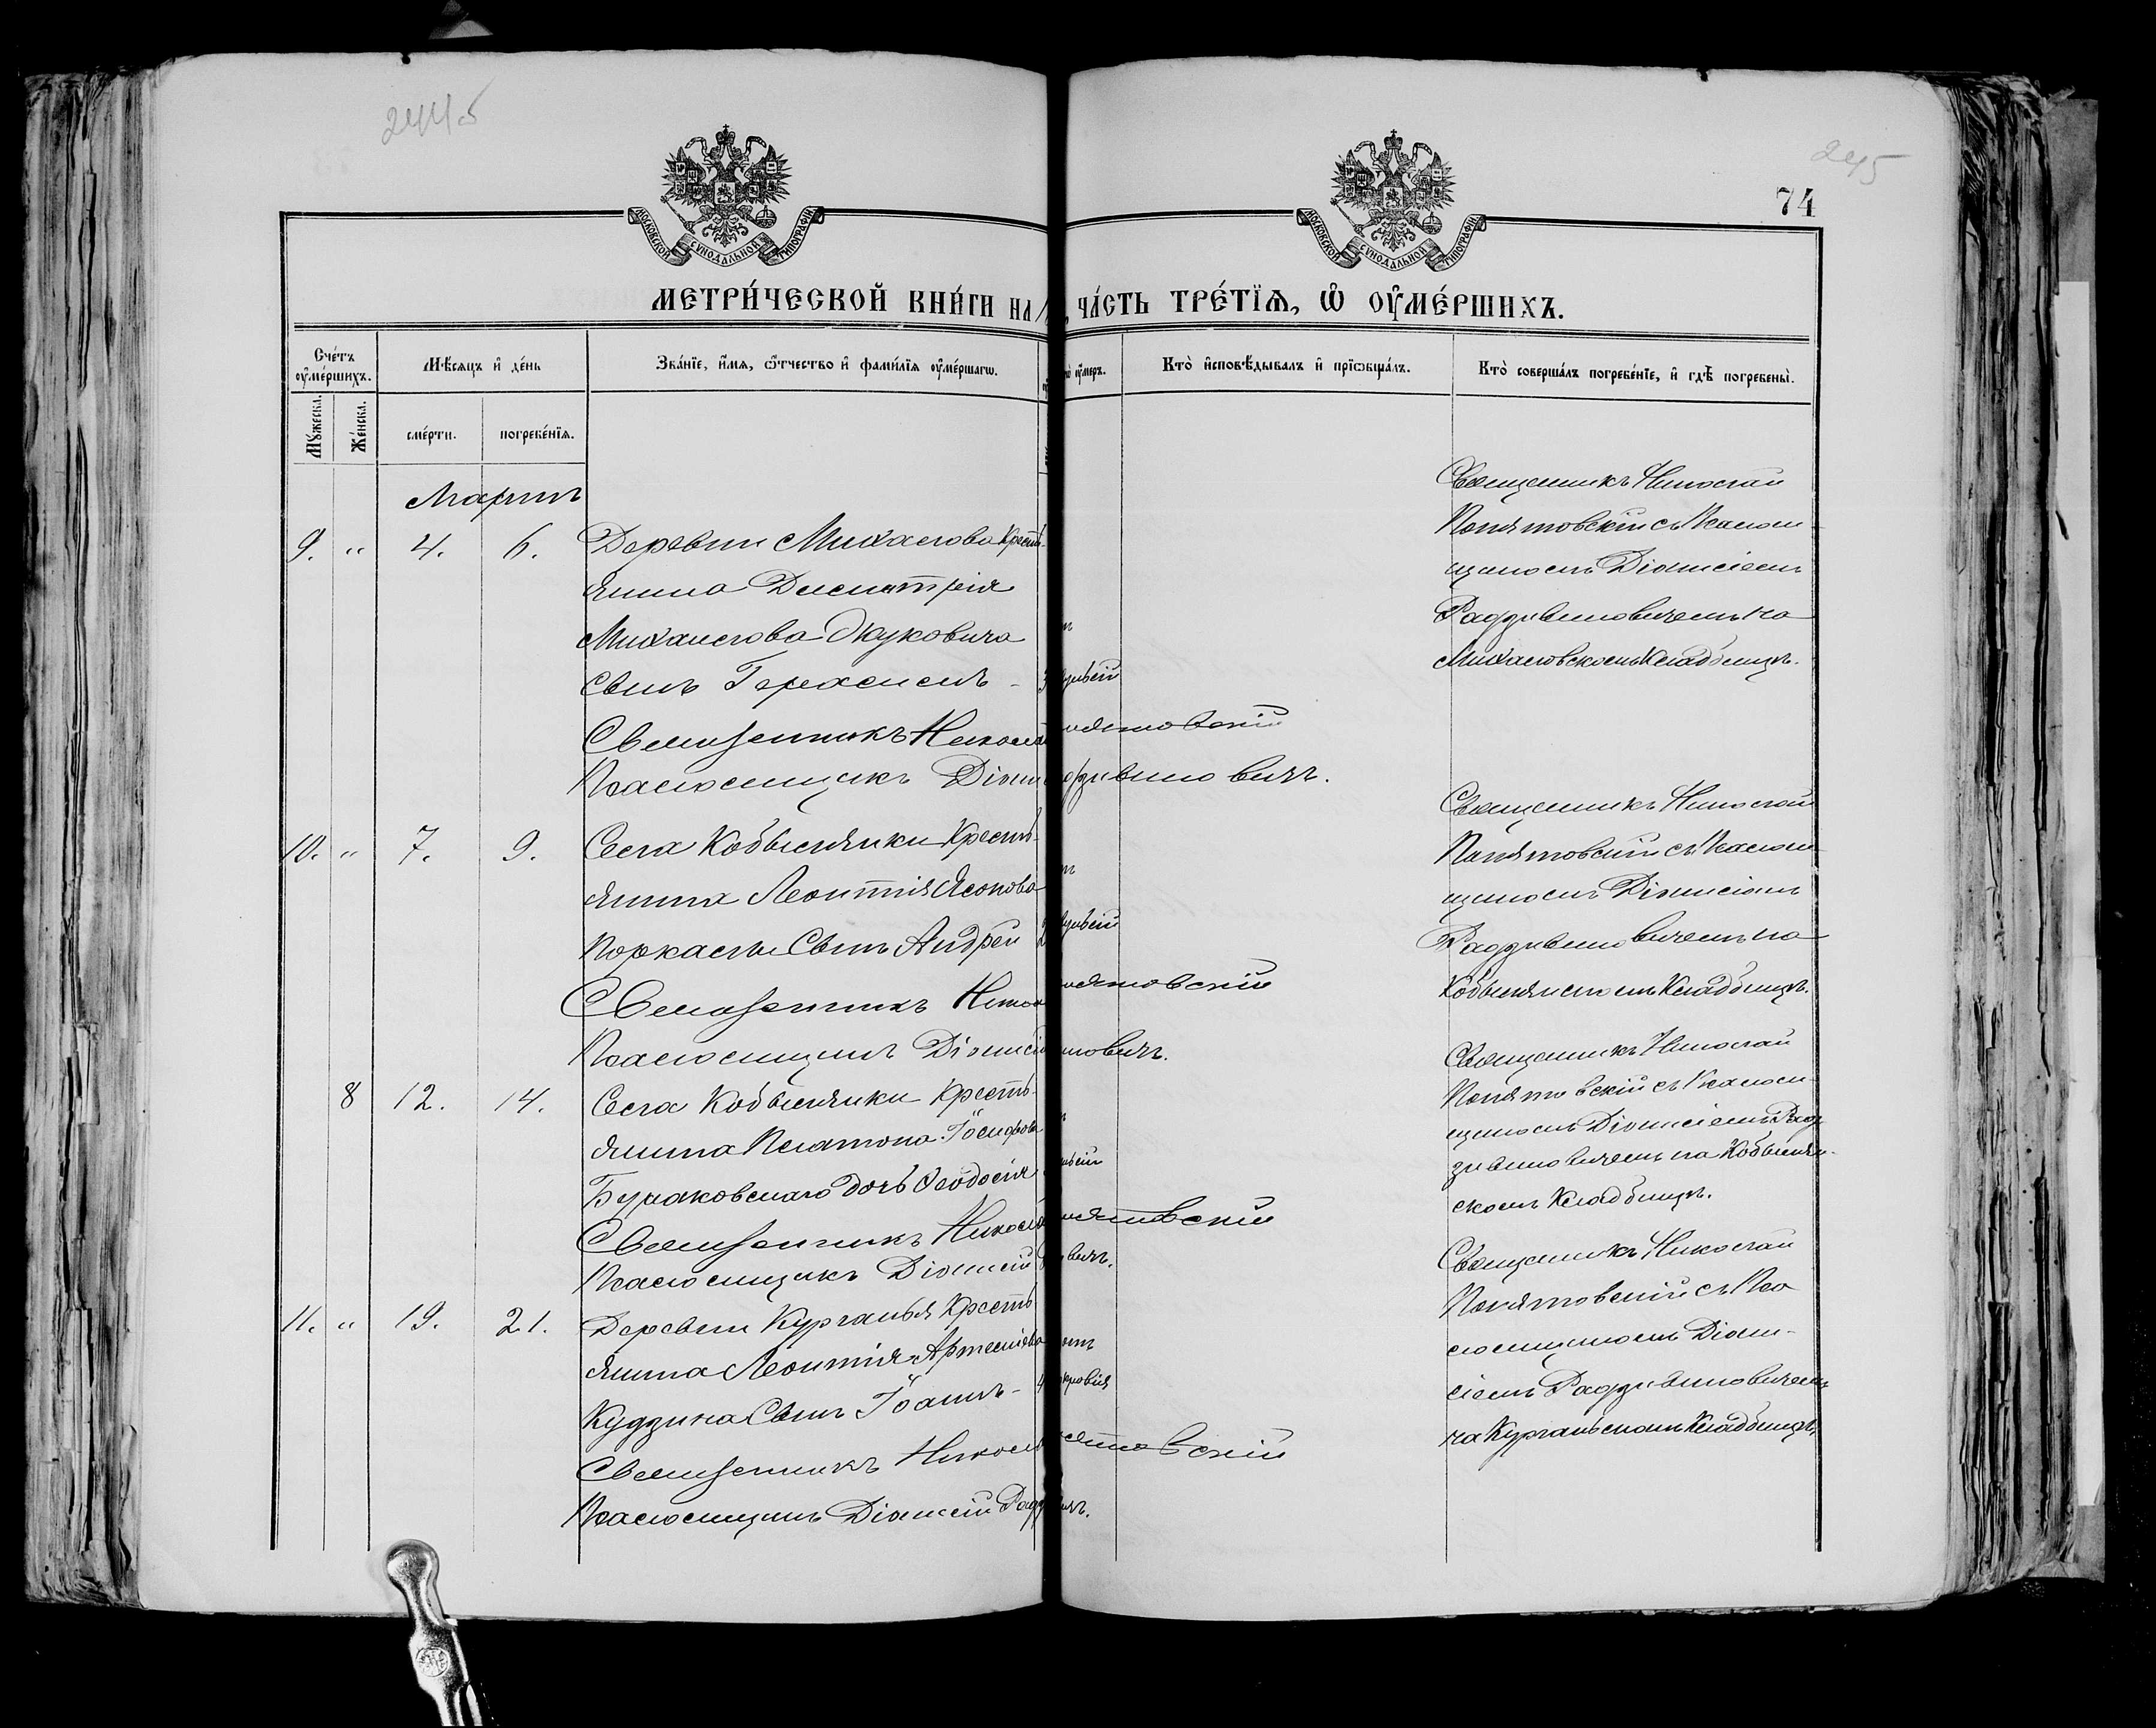 244.5
245
74
МОСКОВСКОЙ СѴНОДАЛЬНОЙ ТИПОГРАФІИ
МОСКОВСКОЙ СѴНОДАЛЬНОЙ ТИПОГРАФІИ
МЕТРИ́ЧЕСКОЙ КНИ́ГИ НА
ЧА́СТЬ ТРЕ́ТЇѦ, Ѡ҆ ОУ҆МЕ́РШИХЪ.
Сче́тъ оу҆ме́ршихъ.
Мѣ́сѧцъ и҆ де́нь
Зва́нїе, и҆́мѧ, ѻ҆́тчество и҆ фами́лїѧ оу҆ме́ршагѡ.
оу҆меръ.
Кто̀ и҆сповѣ́дывалъ и҆ прїѡбща́лъ.
Кто̀ соверша́лъ погребе́нїе, и҆ гдѣ̀ погребены̀.
Мꙋ́жеска.
Же́нска.
сме́рти.
погребе́нїѧ.
Мартъ
9. „ 4. 6. Деревни Михалова Кресть-
янина Димитрія
Михаилова Жуковича
Сынъ Герасимъ -
Священникъ Никола
нятовскій
Псаломщикъ Діони
дзивиловичъ.
Священникъ Николай
Понятовскій съ Псалом-
щикомъ Діонисіемъ
Радзивиловичемъ на
Михаловскомъ Кладбищѣ.
10. „ 7. 9. Села Кобыльники Кресть-
янина Леонтія
Сынъ Андрей
Священникъ Никол
нятовскій
Псаломщикъ Діонисі
ловичъ.
Священникъ Николай
Понятовскій съ Псалом-
щикомъ Діонисіемъ
Радзивиловичемъ на
Кобыльникскомъ Кладбищѣ.
8 12. 14. Села Кобыльники Кресть-
янина Платона Іосифова
Бураковскаго дочь Ѳеодосія
Священникъ Никола
нятовскій
Псаломщикъ Діонисій
вичъ.
Священникъ Николай
Понятовскій съ Псалом-
щикомъ Діонисіемъ Рад-
зивиловичемъ на Кобыльник-
скомъ Кладбищѣ.
11. „ 19. 21. Деревни Курганья Кресть
янина Леонтія Артеміева
Кудзина Сынъ Іоаннъ -
Священникъ Никола
нятовскій
Псаломщикъ Діонисій Радз
вичъ.
Священникъ Николай
Понятовскій съ Пса
ломщикомъ Діони-
сіемъ Радзивиловичемъ
на Курганьскомъ Кладбищѣ.